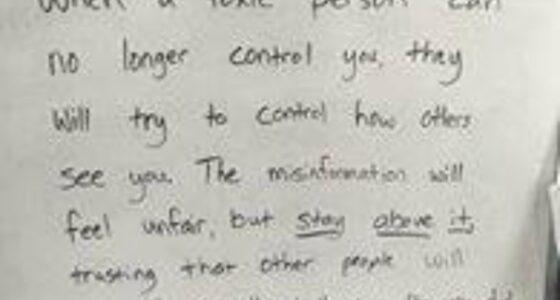 When a toxic person can
no longer control you, they
will try to control how others
see you. The misinformation will
feel unfair, but stay above it,
trusting that other people will